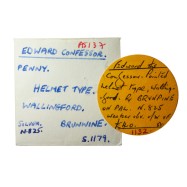 PS137
EDWARD CONFESSOR.
PENNY.
HELMET TYPE.
WALLINGFORD,
SILVER, BRUNWINE.
N.825. S.1179.
Edward the
Confessor. Pointed
helmet type, Walling-
ford. By BRUNPINE
ON PAL. N.825